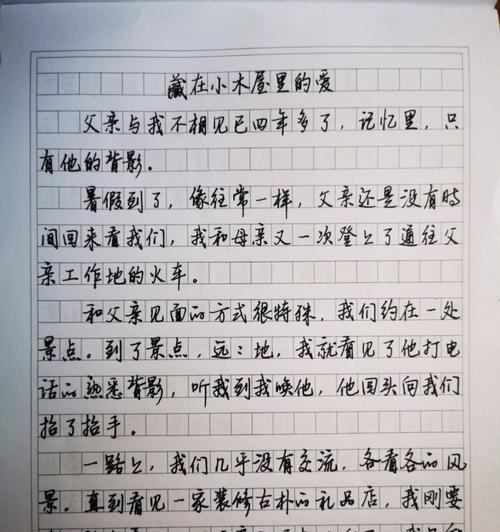 藏在小木屋里的爱
父亲与我不相见已四年多了，记忆里，只
有他的背影。
暑假到了，像往常一样，父亲还是没有时
间回来看我们，我和母亲又一次登上了通往父
亲工作地的火车。
和父亲见面的方式很特殊，我们约在一处
景点。到了景点，远：地，我就看见了他打电
话的熟悉背影，听我到我唤他，他回头向我们
抬了抬手。
一路上，我们几乎没有交流，各看各的风
景。直到看见一家装修古朴的礼品店，我刚要